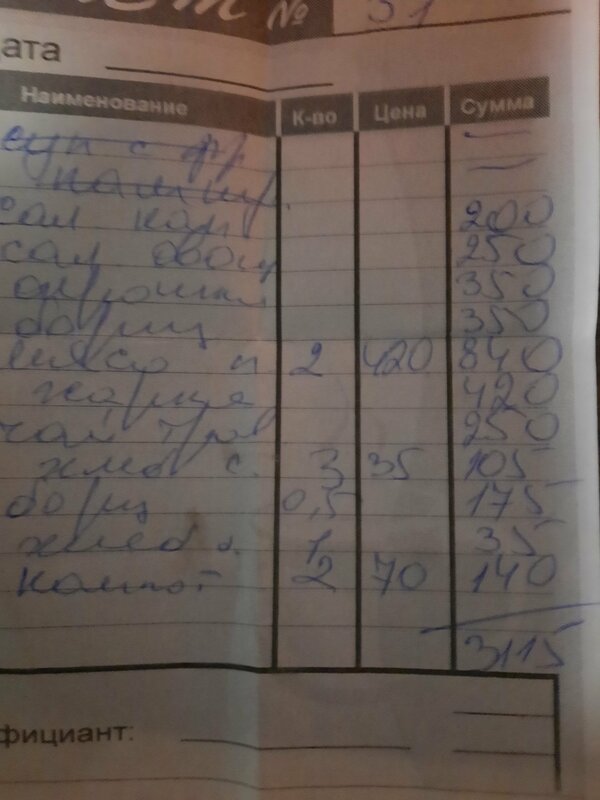 № 31
ата
Наименование К-во Цена Сумма
суп с фр —
—
сал кап 200
сал овощ 250
окрошка 350
борщ 350
мясо п 2 420 840
жаркое 420
чай трав 250
хлеб с. 3 35 105
борщ 0,5 175
хлеб 1 35
компот 2 70 140
3115
фициант: